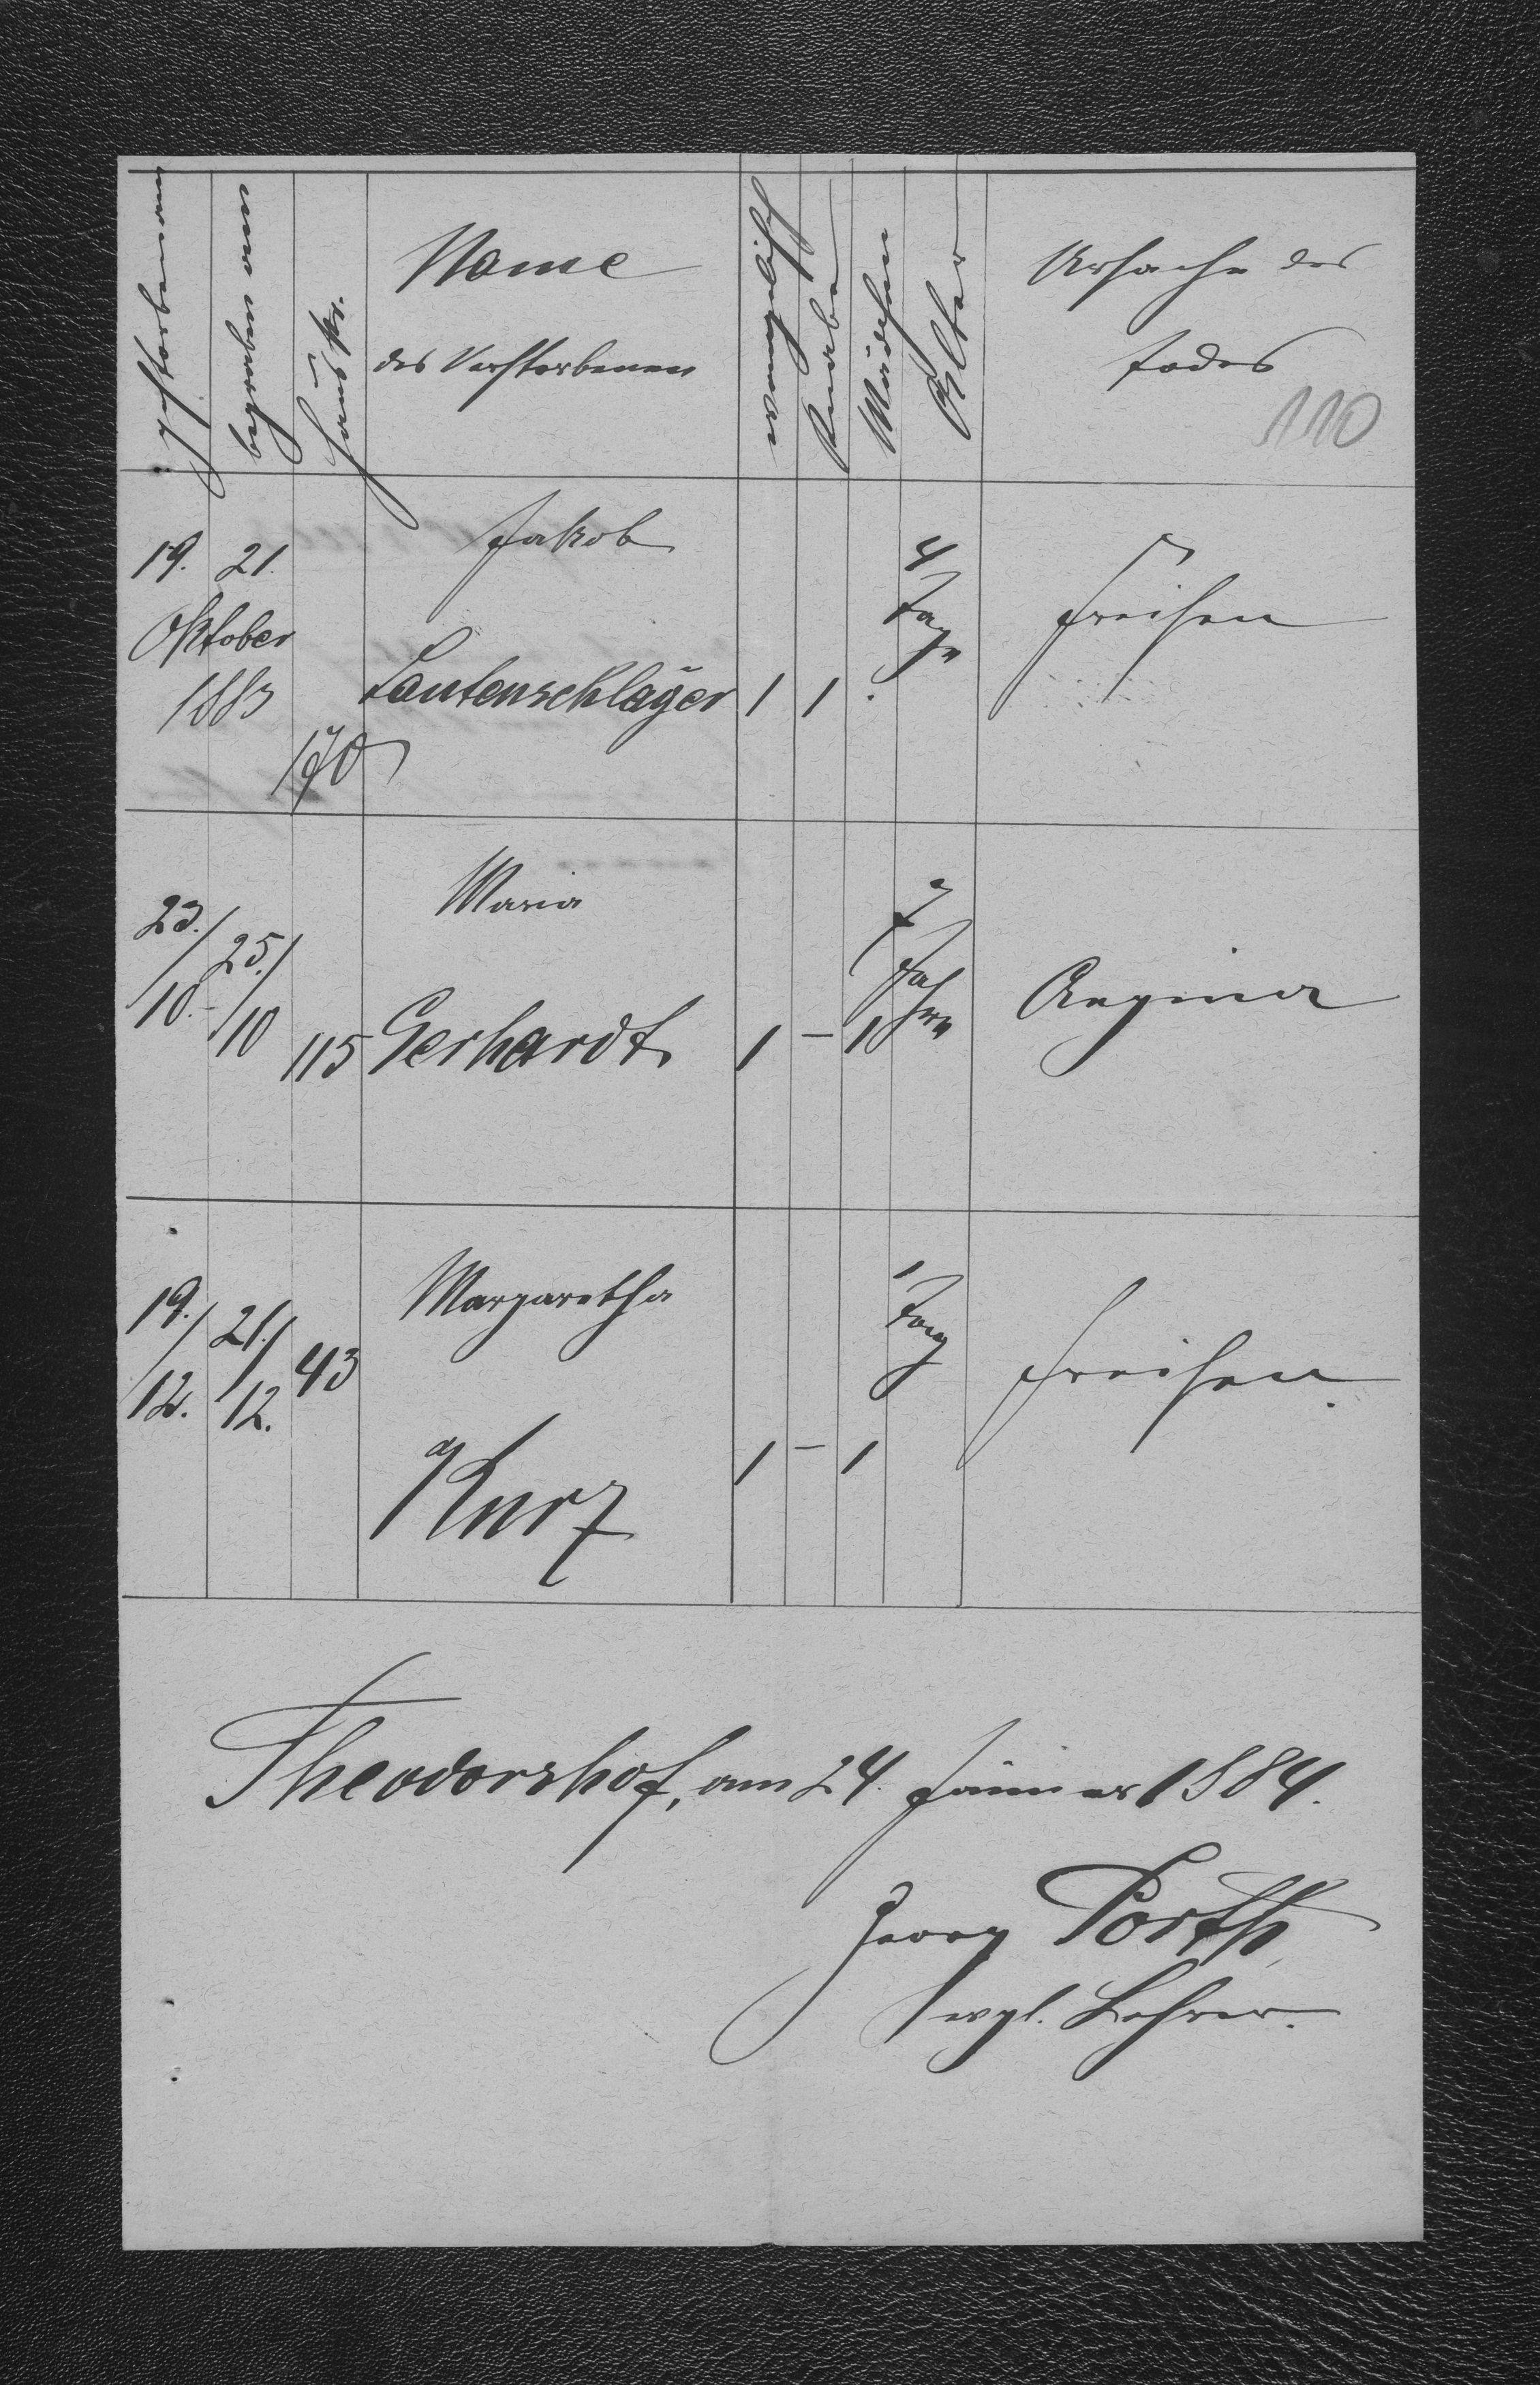 gestorben am
begraben am
Haus Nr.
Name
des Verstorbenen
evangelisch
Knabe
Mädchen
Alter
Ursache des
Todes
110
19. 21.
Oktober
1883
170
Jakob
Lautenschläger
1 1 .
4
Tage
Freisen
23./10. 25./10
115
Maria
Gerhardt
1 – 1
7
Jahre
Angina
19./12. 21./12.
43
Margaretha
Kurz
1 – 1
1
Tag
Freisen.
Theodorshof, am 24. Jänner 1884.
Georg Porth,
evgl. Lehrer.